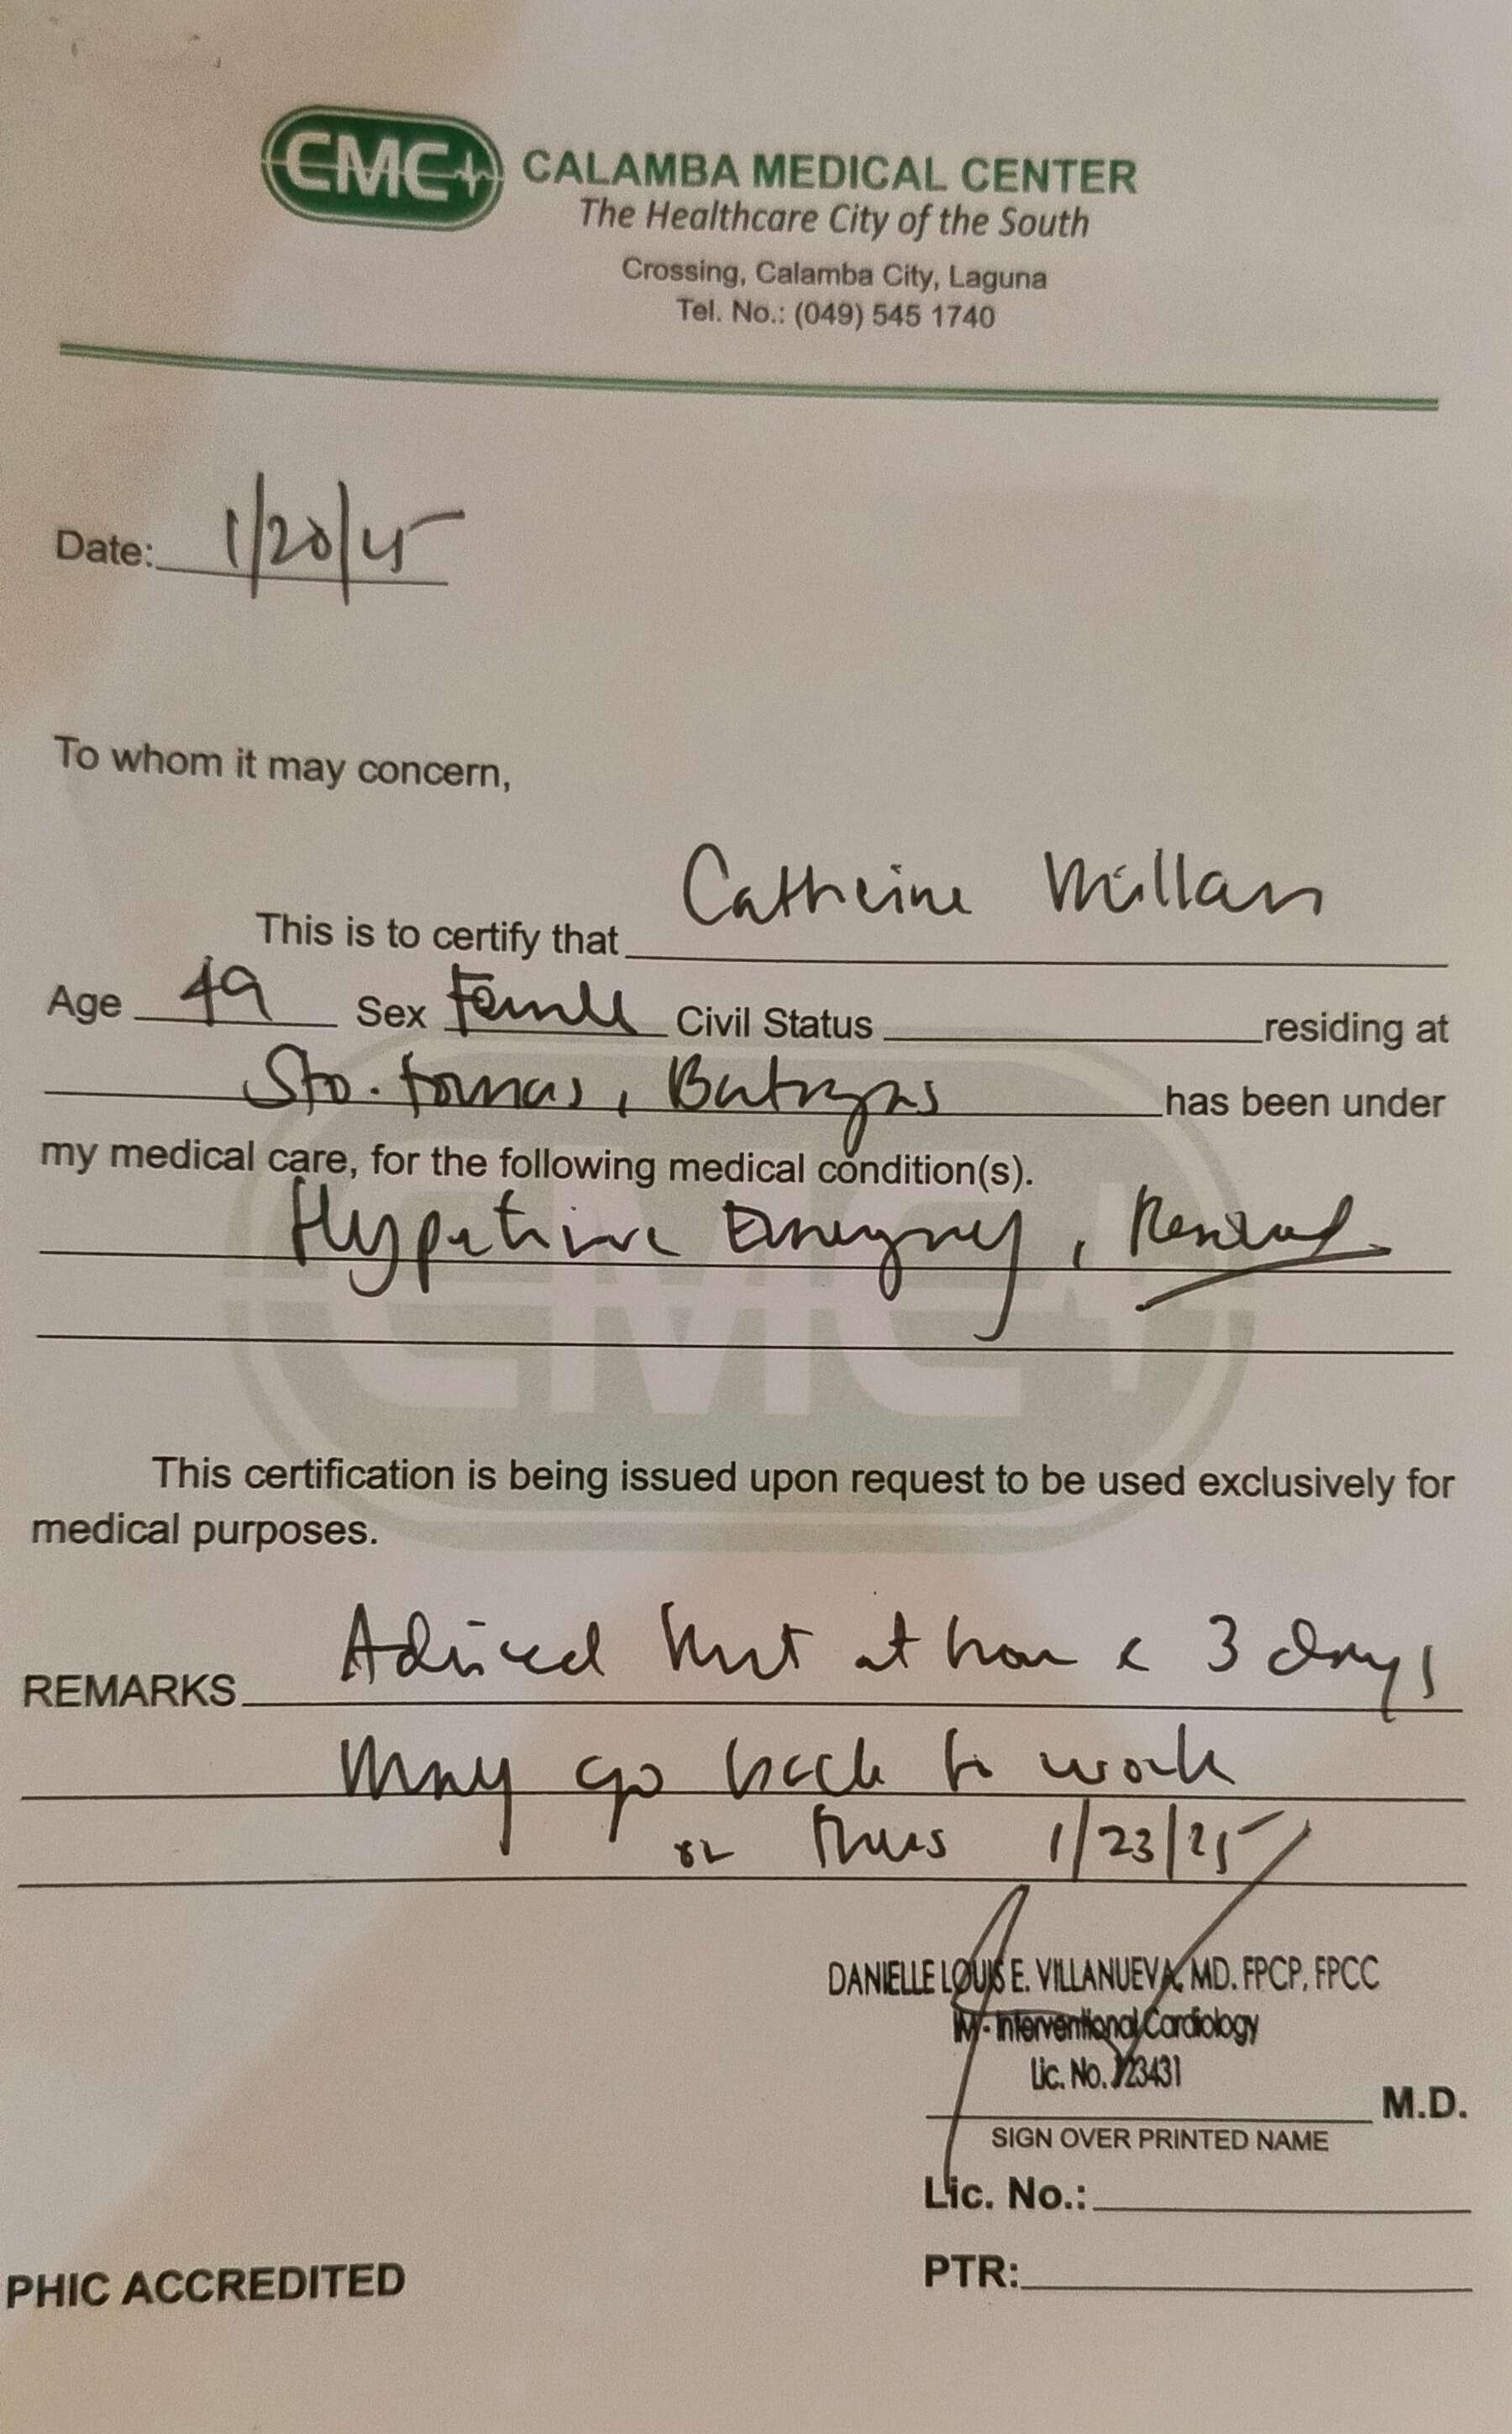 CMC
CALAMBA MEDICAL CENTER
The Healthcare City of the South
Crossing, Calamba City, Laguna
Tel. No.: (049) 545 1740
Date: 1/20/25
To whom it may concern,
This is to certify that Catherine Millan
Age 49 Sex Female Civil Status residing at
Sto. tomas, Batangas has been under
my medical care, for the following medical condition(s).
Hypertensive Emergency, Resolved
This certification is being issued upon request to be used exclusively for
medical purposes.
REMARKS Advised rest at home x 3 days
May go back to work
on thurs 1/23/25
DANIELLE LOUIS E. VILLANUEVA, MD. FPCP, FPCC
IM - Interventional Cardiology
Lic. No. 123431
M.D.
SIGN OVER PRINTED NAME
Lic. No.:
PHIC ACCREDITED PTR: